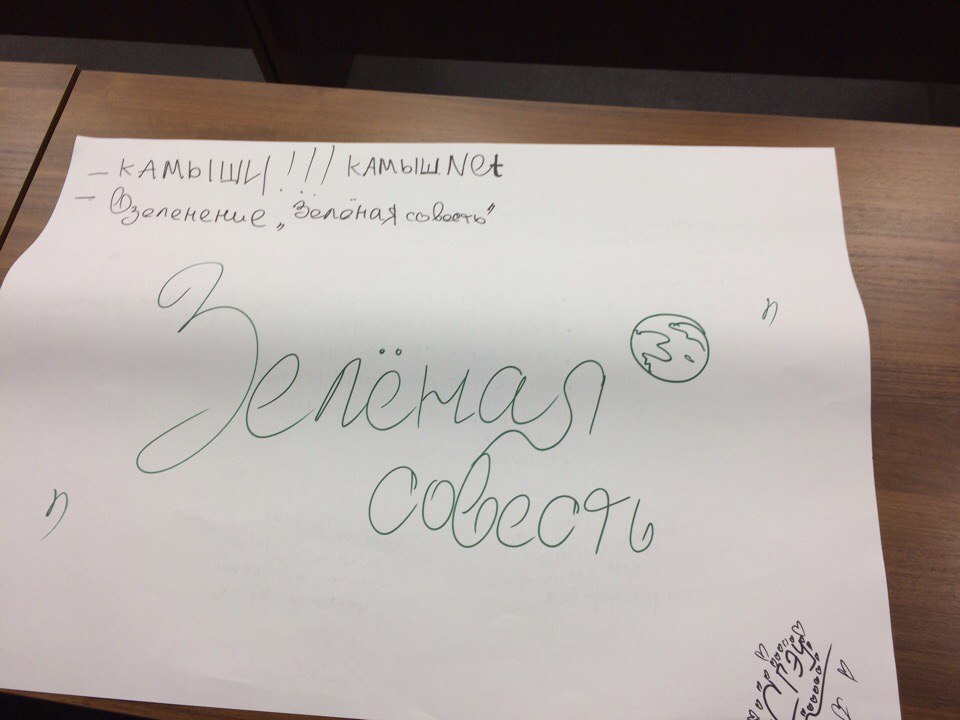 – КАМЫШИ!!! КАМЫШ.Net
– Озеленение „Зелёная совесть"
„Зелёная
совесть"